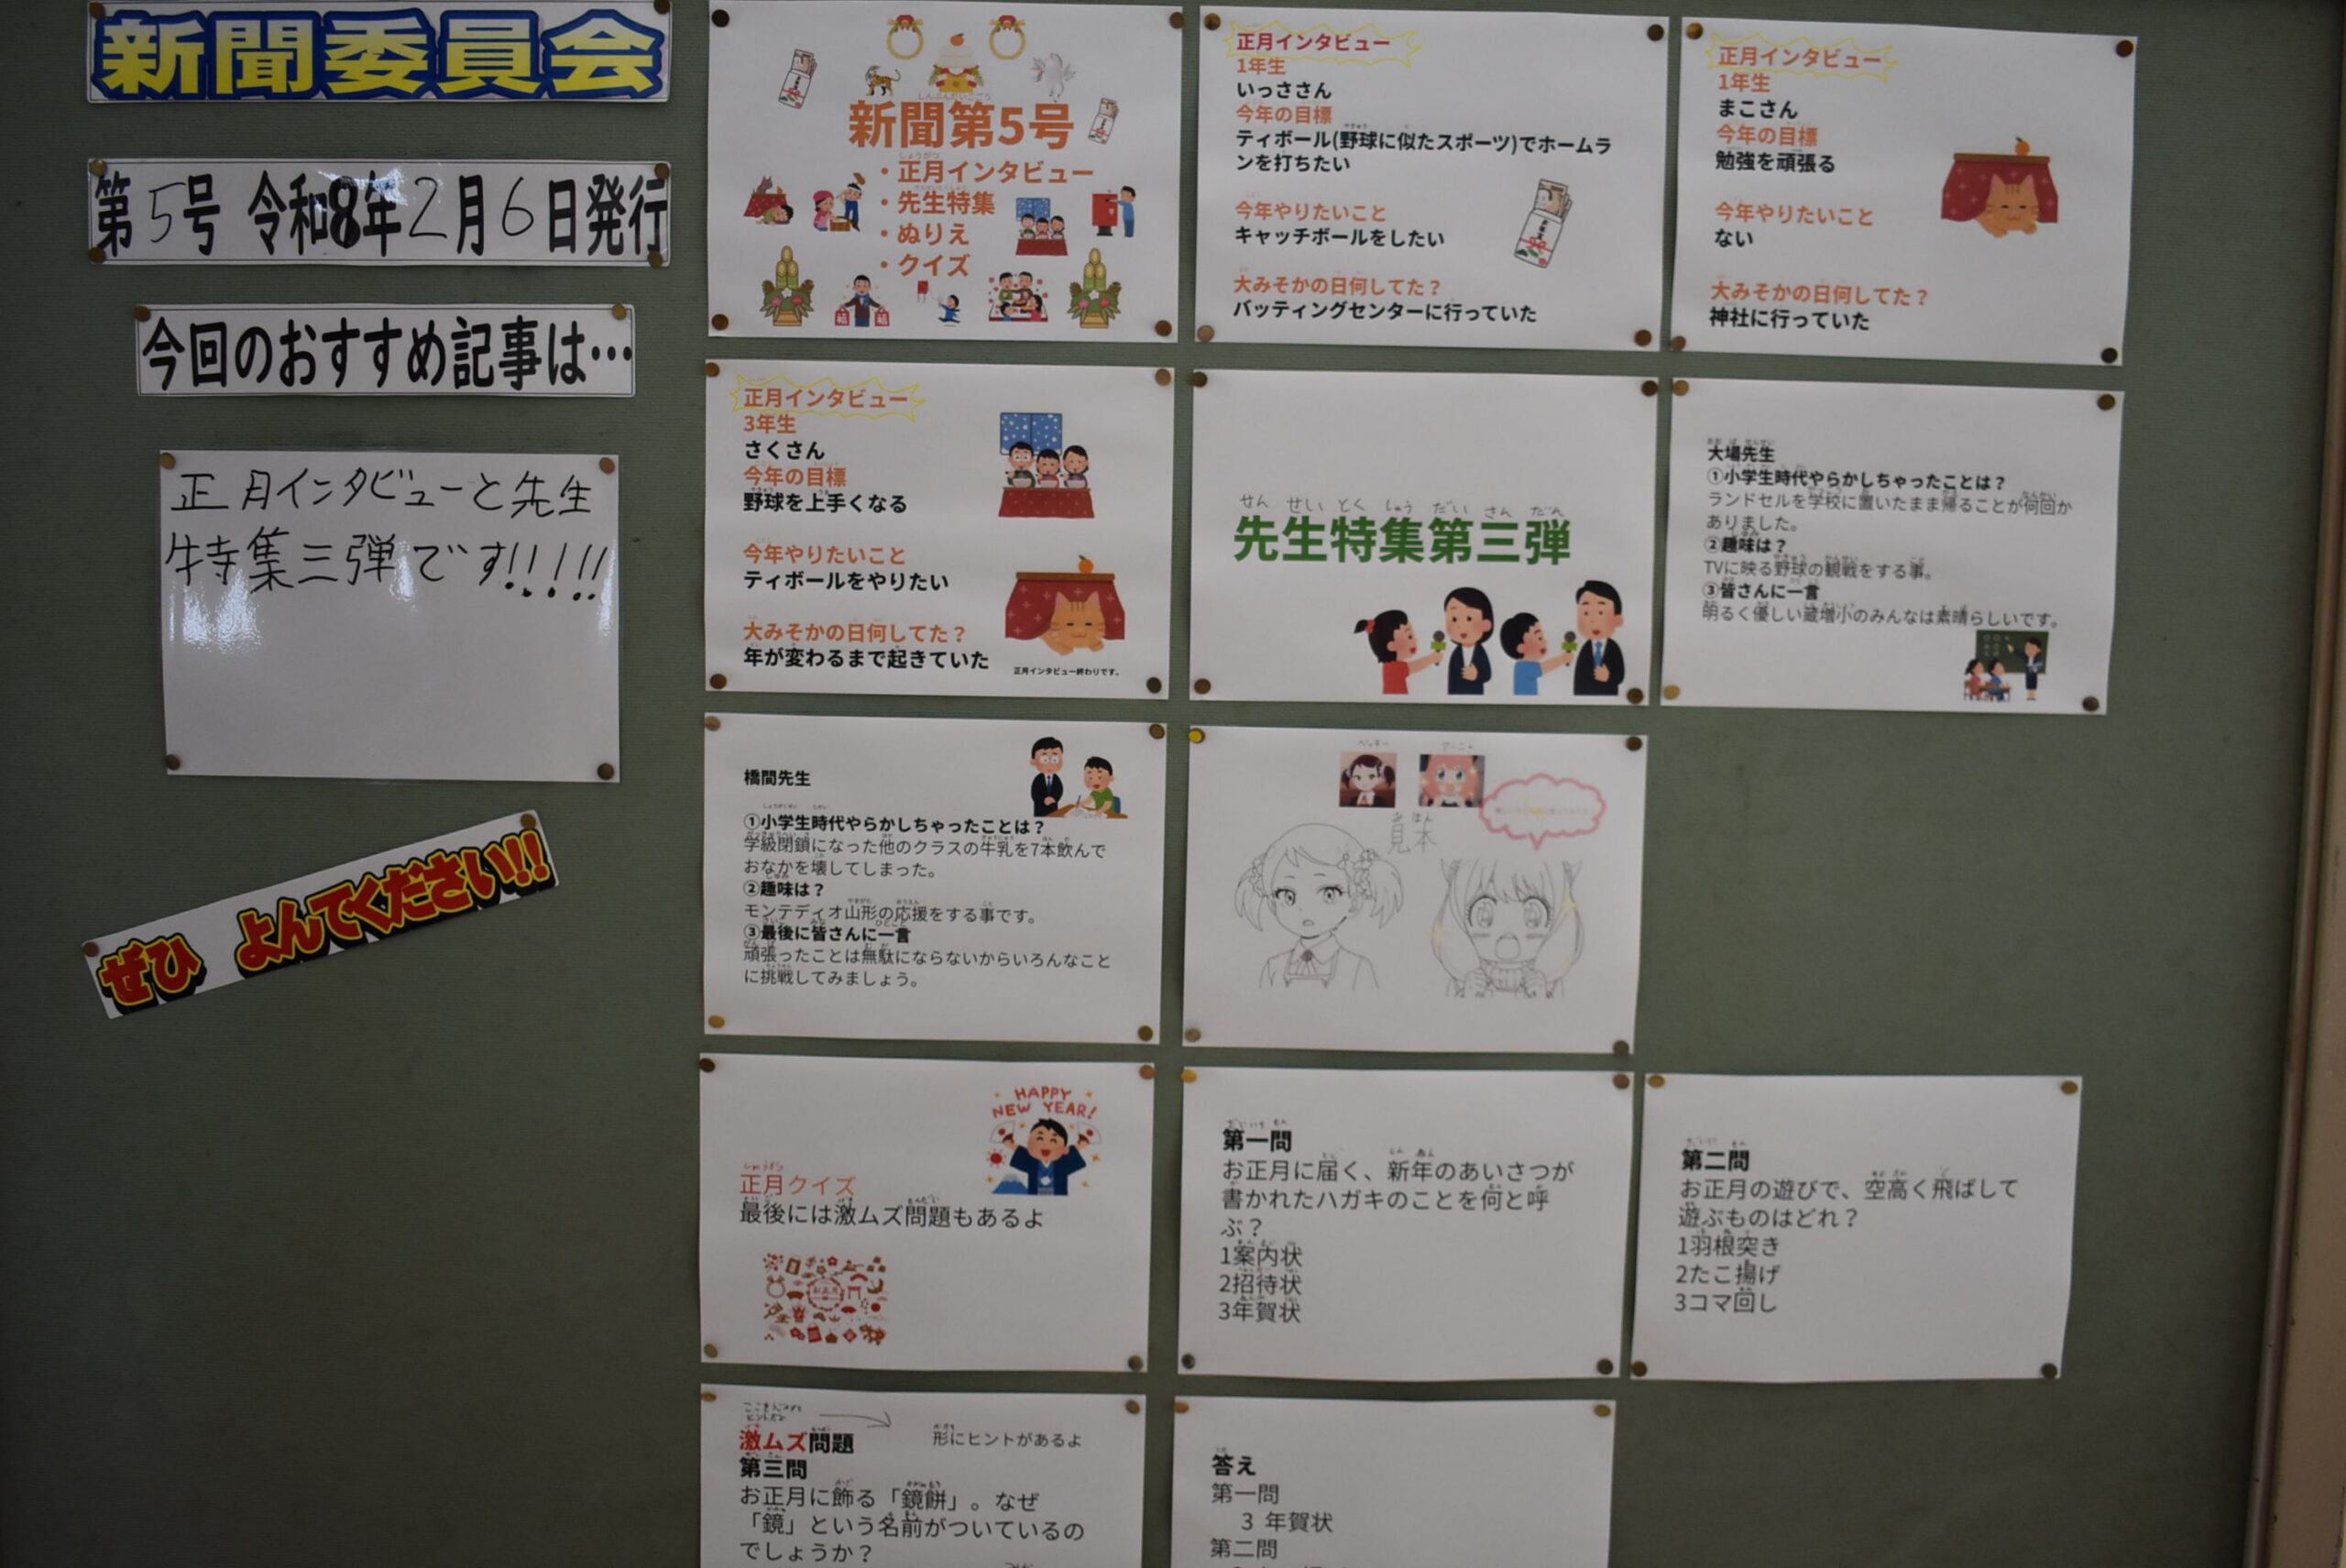 新聞委員会
第5号 令和8年2月6日発行
今回のおすすめ記事は…
正月インタビューと先生
特集三弾です!!!!!
ぜひ よんでください!!
しんぶんだいごごう
新聞第5号
しょうがつ
・正月インタビュー
せんせいとくしゅう
・先生特集
・ぬりえ
・クイズ
正月インタビュー
1年生
いっささん
今年の目標
ティボール(野球に似たスポーツ)でホームラ
ンを打ちたい
今年やりたいこと
キャッチボールをしたい
大みそかの日何してた？
バッティングセンターに行っていた
正月インタビュー
1年生
まこさん
今年の目標
勉強を頑張る
今年やりたいこと
ない
大みそかの日何してた？
神社に行っていた
正月インタビュー
3年生
さくさん
今年の目標
野球を上手くなる
今年やりたいこと
ティボールをやりたい
大みそかの日何してた？
年が変わるまで起きていた
正月インタビュー終わりです。
せん せい とく しゅう だい さん だん
先生特集第三弾
おお ば せんせい
大場先生
①小学生時代やらかしちゃったことは？
ランドセルを学校に置いたまま帰ることが何回か
ありました。
②趣味は？
TVに映る野球の観戦をする事。
③皆さんに一言
明るく優しい蔵増小のみんなは素晴らしいです。
橋間先生
①小学生時代やらかしちゃったことは？
学級閉鎖になった他のクラスの牛乳を7本飲んで
おなかを壊してしまった。
②趣味は？
モンテディオ山形の応援をする事です。
③最後に皆さんに一言
頑張ったことは無駄にならないからいろんなこと
に挑戦してみましょう。
ベッキー アーニャ
み ほん
見本
HAPPY
NEW YEAR!
正月クイズ
最後には激ムズ問題もあるよ
お正月
だいいち もん
第一問
お正月に届く、新年のあいさつが
書かれたハガキのことを何と呼
ぶ？
1案内状
2招待状
3年賀状
だいに もん
第二問
お正月の遊びで、空高く飛ばして
遊ぶものはどれ？
1羽根突き
2たこ揚げ
3コマ回し
激ムズ問題
形にヒントがあるよ
第三問
お正月に飾る「鏡餅」。なぜ
「鏡」という名前がついているの
でしょうか？
答え
第一問
3 年賀状
第二問